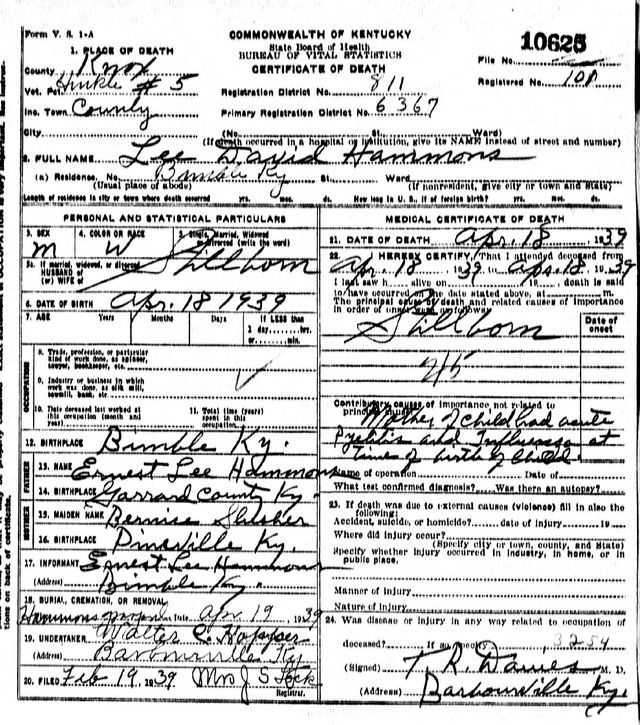 Form V. S. 1-A
COMMONWEALTH OF KENTUCKY
State Board of Health
BUREAU OF VITAL STATISTICS
CERTIFICATE OF DEATH
10625
File No.
Registered No. 108
1. PLACE OF DEATH
County Knox
Vot. Pct. Hinkle # 5
Inc. Town County
City
Registration District No. 811
Primary Registration District No. 6367
(No. St. Ward)
(If death occurred in a hospital or institution, give its NAME instead of street and number)
2. FULL NAME Lee David Hammons
(a) Residence. No. Bimble Ky St. Ward
(Usual place of abode) (If nonresident, give city or town and State)
Length of residence in city or town where death occurred yrs. mos. ds. How long in U. S., if of foreign birth? yrs. mos. ds.
PERSONAL AND STATISTICAL PARTICULARS
3. SEX M
4. COLOR OR RACE W
5. Single, Married, Widowed
or Divorced (write the word)
Stillborn
5a. If married, widowed, or divorced
HUSBAND of
(or) WIFE of
6. DATE OF BIRTH Apr. 18 1939
7. AGE Years Months Days If LESS than
1 day, hrs.
or min.
OCCUPATION
8. Trade, profession, or particular
kind of work done, as spinner,
sawyer, bookkeeper, etc.
9. Industry or business in which
work was done, as silk mill,
sawmill, bank, etc.
10. Date deceased last worked at
this occupation (month and
year)
11. Total time (years)
spent in this
occupation
12. BIRTHPLACE Bimble Ky.
FATHER
13. NAME Ernest Lee Hammons
14. BIRTHPLACE Garrard County Ky.
MOTHER
15. MAIDEN NAME Bernice
16. BIRTHPLACE Pineville Ky.
17. INFORMANT Ernest Lee Hammons
(Address) Bimble Ky.
18. BURIAL, CREMATION, OR REMOVAL
Hammons Date Apr. 19 1939
19. UNDERTAKER Walter C. Hopper
(Address) Barbourville Ky
20. FILED Feb 19 1939 Mrs J S Lock
Registrar.
MEDICAL CERTIFICATE OF DEATH
21. DATE OF DEATH Apr. 18 1939
22. I HEREBY CERTIFY, That I attended deceased from
Apr. 18 1939 to Apr. 18 1939
I last saw h alive on 19 death is said
to have occurred on the date stated above, at m.
The principal cause of death and related causes of importance
in order of onset were as follows:
Date of
onset
Stillborn
Contributory causes of importance not related to
principal cause:
Mother of child had acute
Pyelitis and Influenza at
time of birth of child.
Name of operation Date of
What test confirmed diagnosis? Was there an autopsy?
23. If death was due to external causes (violence) fill in also the
following:
Accident, suicide, or homicide? date of injury 19
Where did injury occur?
(Specify city or town, county, and State)
Specify whether injury occurred in industry, in home, or in
public place.
Manner of injury
Nature of injury
24. Was disease or injury in any way related to occupation of
deceased? If so, specify 3254
(Signed) T. R. Davies M. D.
(Address) Barbourville Ky.
tions on back of certificate.